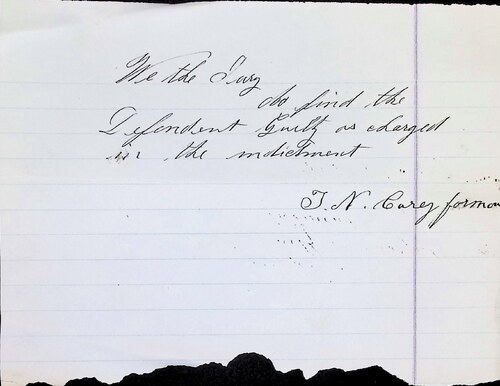 We the Jury
do find the
Defendent Guilty as charged
in the indictment
T. N. Carey forman